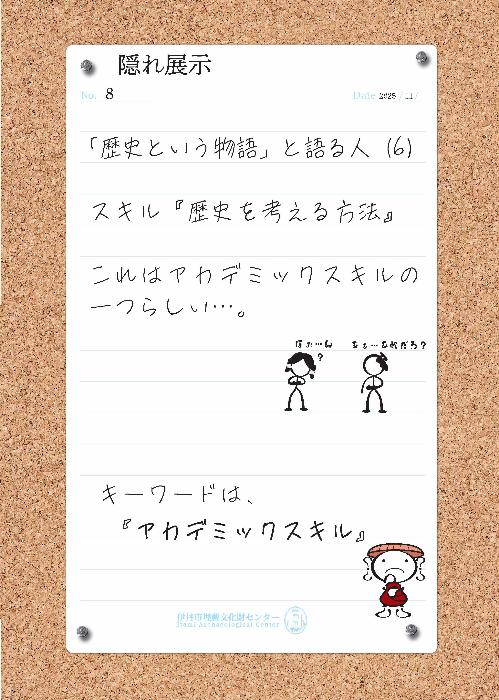 隠れ展示
No. 8
Date 2025 / 11 /
「歴史という物語」と語る人 (6)
スキル『歴史を考える方法』
これはアカデミックスキルの
一つらしい…。
?
キーワードは、
『アカデミックスキル』
伊丹市埋蔵文化財センター
Itami Archaeological Center